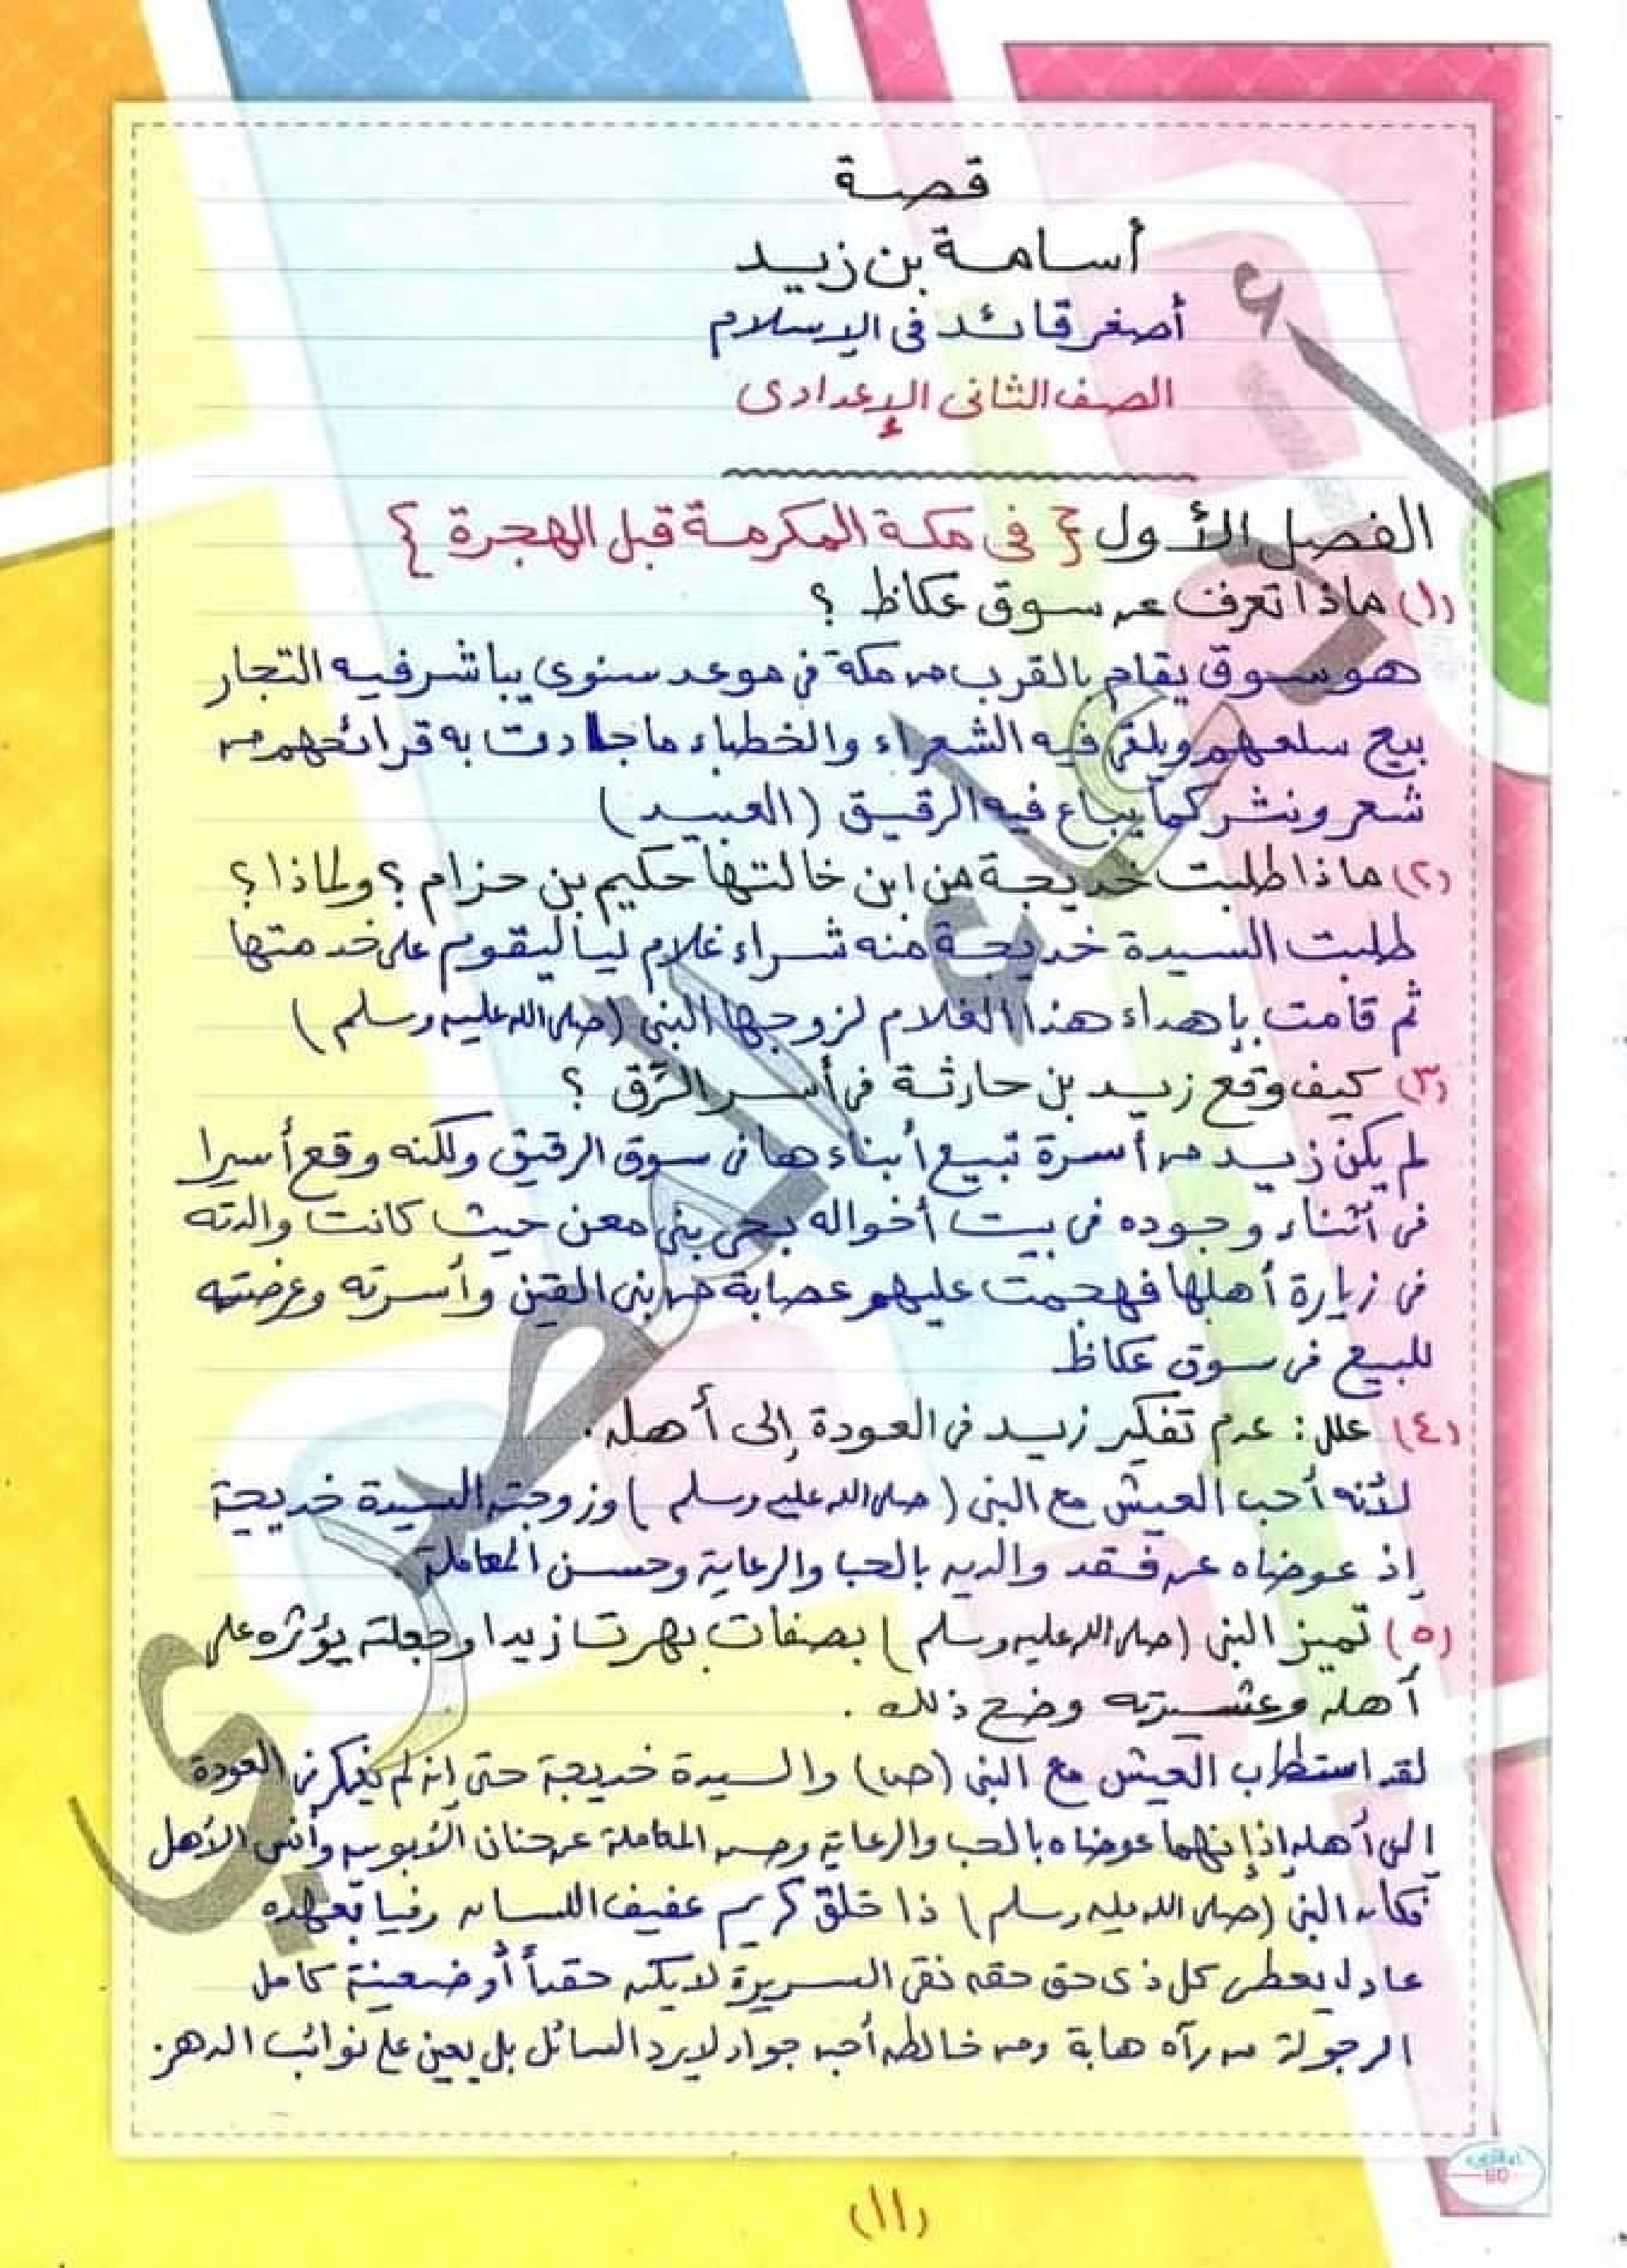 قصة
أسامة بن زيد
أصغر قائد فى الإسلام
الصف الثانى الإعدادى
الفصل الأول { فى مكة المكرمة قبل الهجرة }
(١) ماذا تعرف عن سوق عكاظ ؟
هو سوق يقام بالقرب من مكة فى موعد سنوى يباشر فيه التجار
بيع سلعهم ويلقى فيه الشعراء والخطباء ما جادت به قرائحهم من
شعر ونثر كما يباع فيه الرقيق (العبيد)
(٢) ماذا طلبت خديجة من ابن خالتها حكيم بن حزام ؟ ولماذا ؟
طلبت السيدة خديجة منه شراء غلام ليقوم على خدمتها
ثم قامت بإهداء هذا الغلام لزوجها النبى (صلى الله عليه وسلم)
(٣) كيف وقع زيد بن حارثة فى أسر الرَّق ؟
لم يكن زيد من أسرة تبيع أبناءها فى سوق الرقيق ولكنه وقع أسيرا
فى أثناء وجوده فى بيت أخواله بحى بنى معن حيث كانت والدته
فى زيارة أهلها فهجمت عليهم عصابة من بنى القين وأسرته وعرضته
للبيع فى سوق عكاظ
(٤) علل : عدم تفكير زيد فى العودة إلى أهله .
لأنه أحب العيش مع النبى (صلى الله عليه وسلم) وزوجته السيدة خديجة
إذ عوضاه عن فقد والديه بالحب والرعاية وحسن المعاملة .
(٥) تميز النبى (صلى الله عليه وسلم) بصفات بهرت زيدا وجعلته يؤثره على
أهله وعشيرته وضح ذلك .
لقد استطاب العيش مع النبى (ص) والسيدة خديجة حتى إنه لم يفكر فى العودة
إلى أهله إذ إنهما عوضاه بالحب والرعاية وحسن المعاملة عن حنان الأبوين وأنس الأهل
فكان النبى (صلى الله عليه وسلم) ذا خلق كريم عفيف اللسان وفيا بعهده
عادل يعطى كل ذى حق حقه نقى السريرة لا يكن حقداً أو ضغينة كامل
الرجولة من رآه هابه ومن خالطه أحبه جواد لا يرد السائل بل يعين على نوائب الدهر .
(١١)